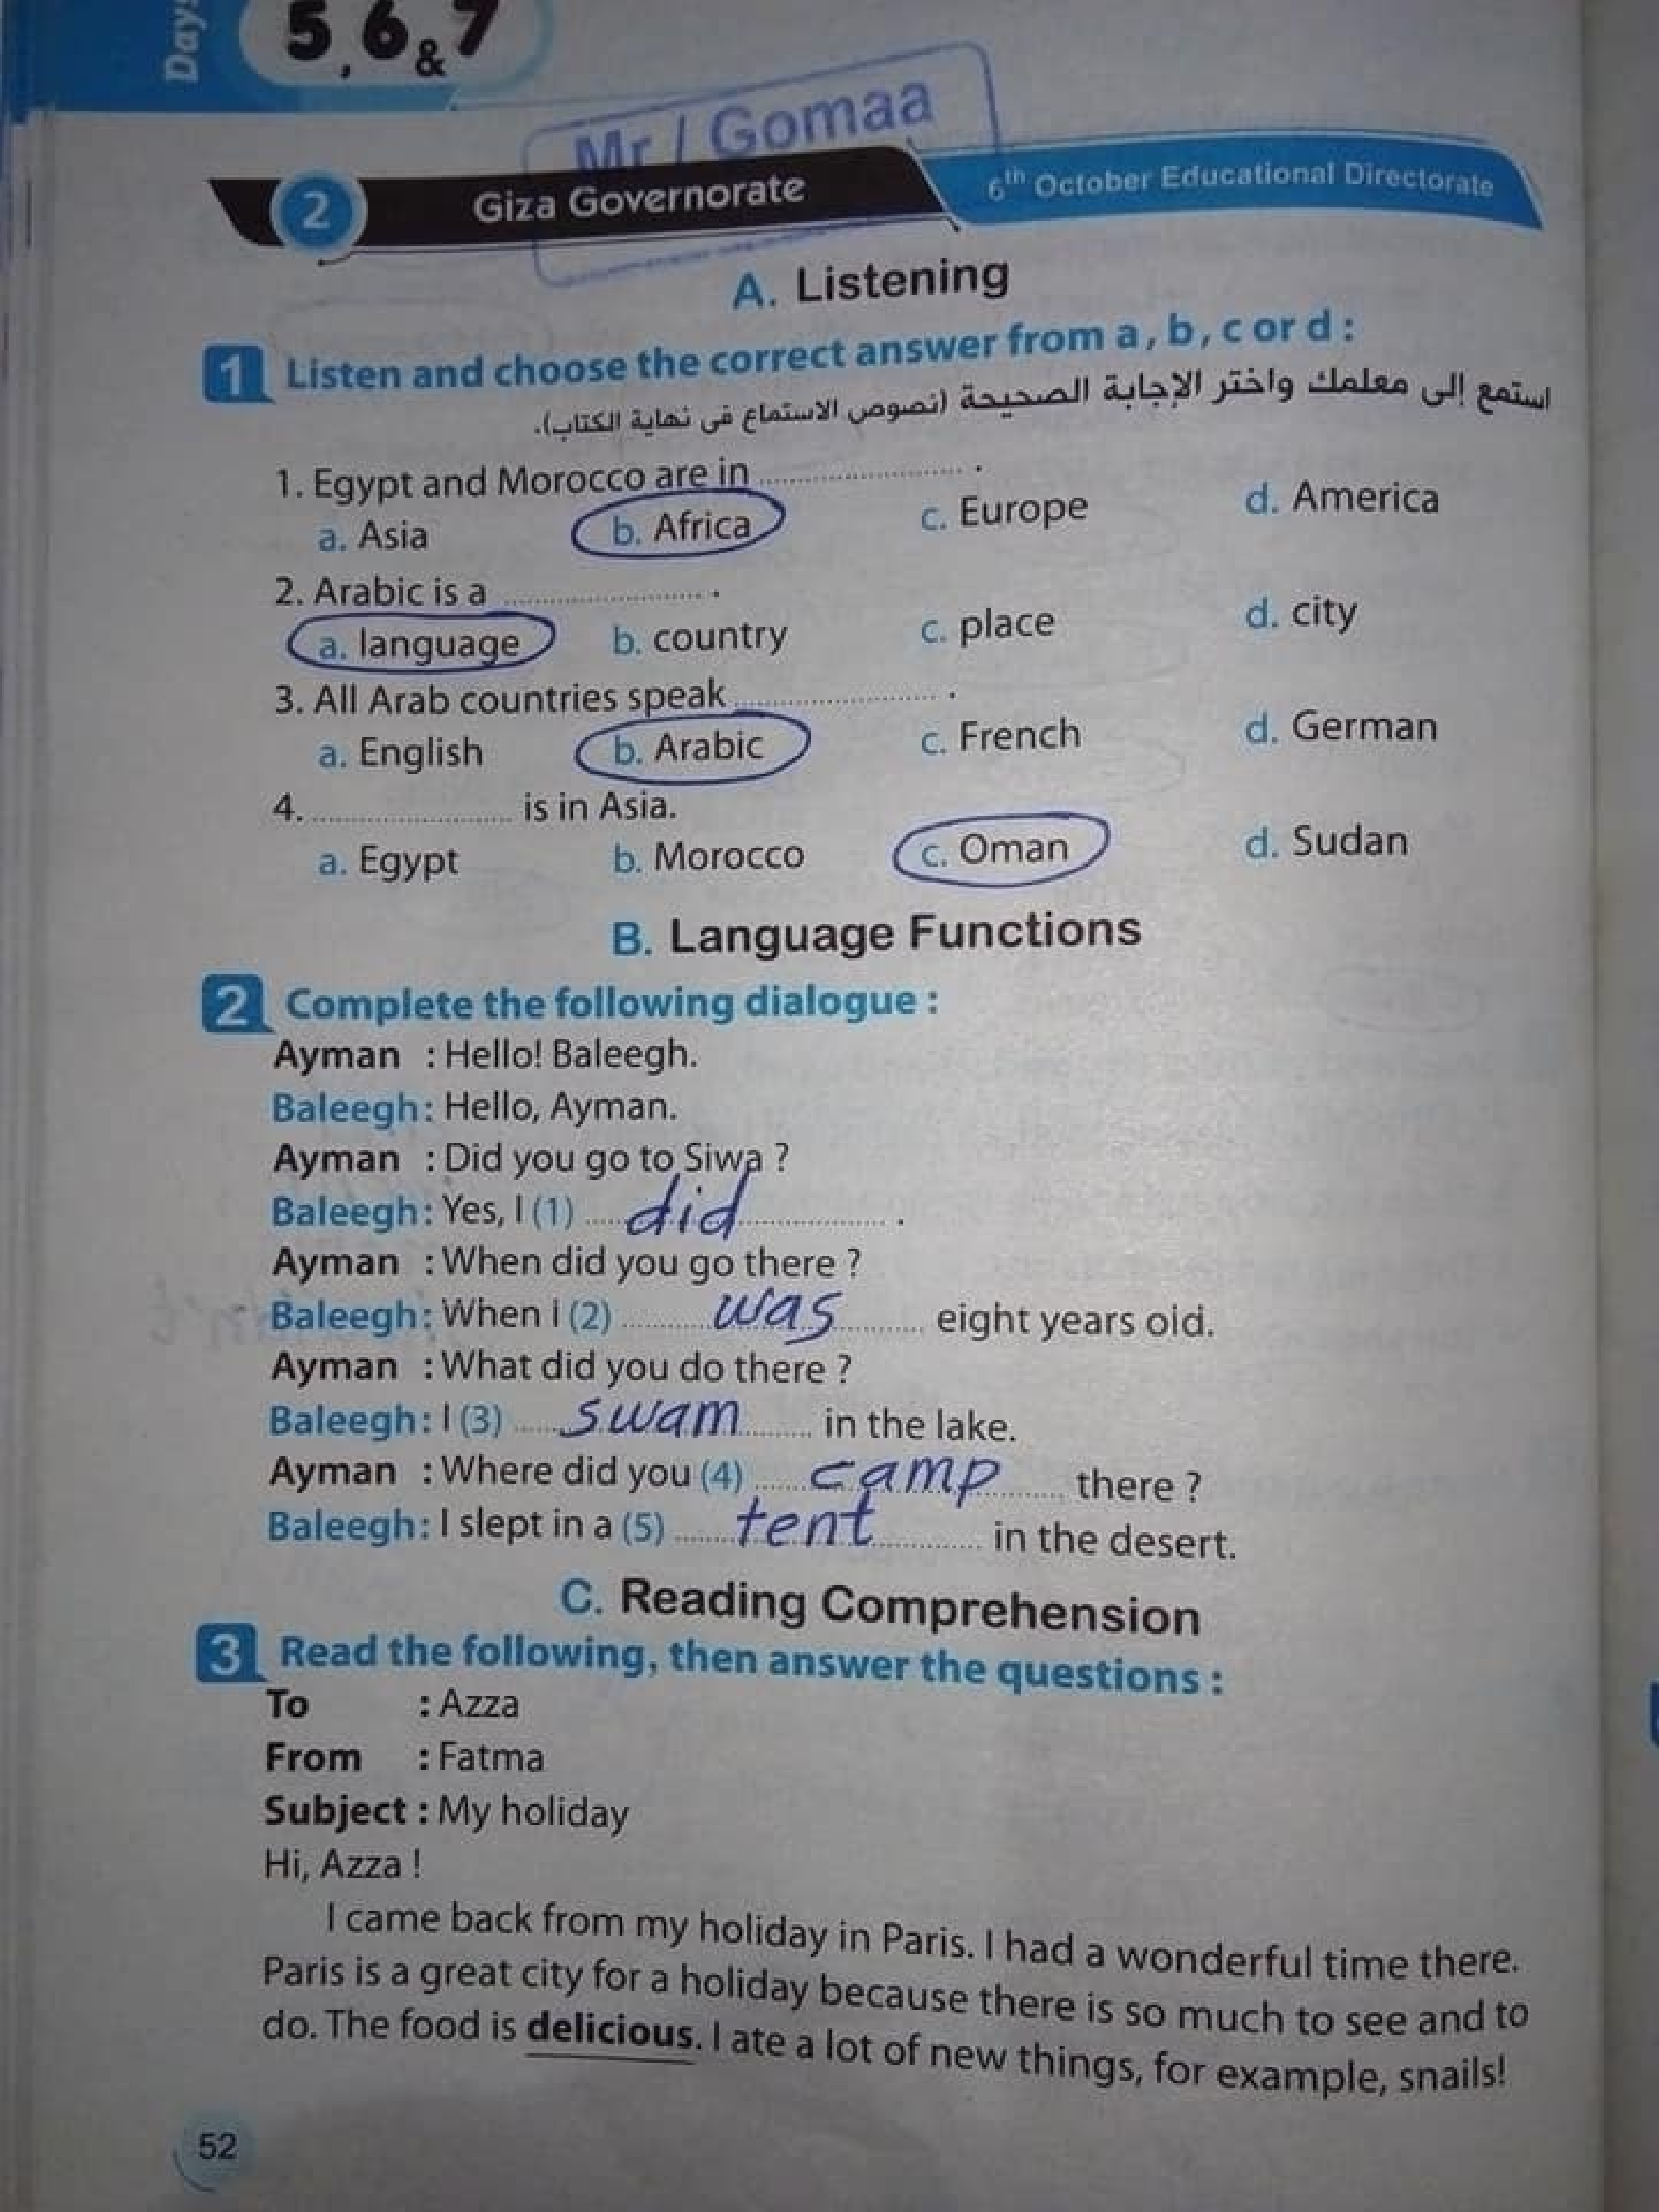 Days
5, 6 & 7
Mr / Gomaa
2 Giza Governorate 6th October Educational Directorate
A. Listening
1 Listen and choose the correct answer from a, b, c or d :
استمع إلى معلمك واختر الإجابة الصحيحة (نصوص الاستماع فى نهاية الكتاب).
1. Egypt and Morocco are in .................... .
a. Asia b. Africa c. Europe d. America
2. Arabic is a .................... .
a. language b. country c. place d. city
3. All Arab countries speak .................... .
a. English b. Arabic c. French d. German
4. .................... is in Asia.
a. Egypt b. Morocco c. Oman d. Sudan
B. Language Functions
2 Complete the following dialogue :
Ayman : Hello! Baleegh.
Baleegh : Hello, Ayman.
Ayman : Did you go to Siwa ?
Baleegh : Yes, I (1) .....did............... .
Ayman : When did you go there ?
Baleegh : When I (2) ..........was.......... eight years old.
Ayman : What did you do there ?
Baleegh : I (3) .....swam....... in the lake.
Ayman : Where did you (4) .....camp....... there ?
Baleegh : I slept in a (5) ......tent............ in the desert.
C. Reading Comprehension
3 Read the following, then answer the questions :
To : Azza
From : Fatma
Subject : My holiday
Hi, Azza !
I came back from my holiday in Paris. I had a wonderful time there.
Paris is a great city for a holiday because there is so much to see and to
do. The food is delicious. I ate a lot of new things, for example, snails!
52